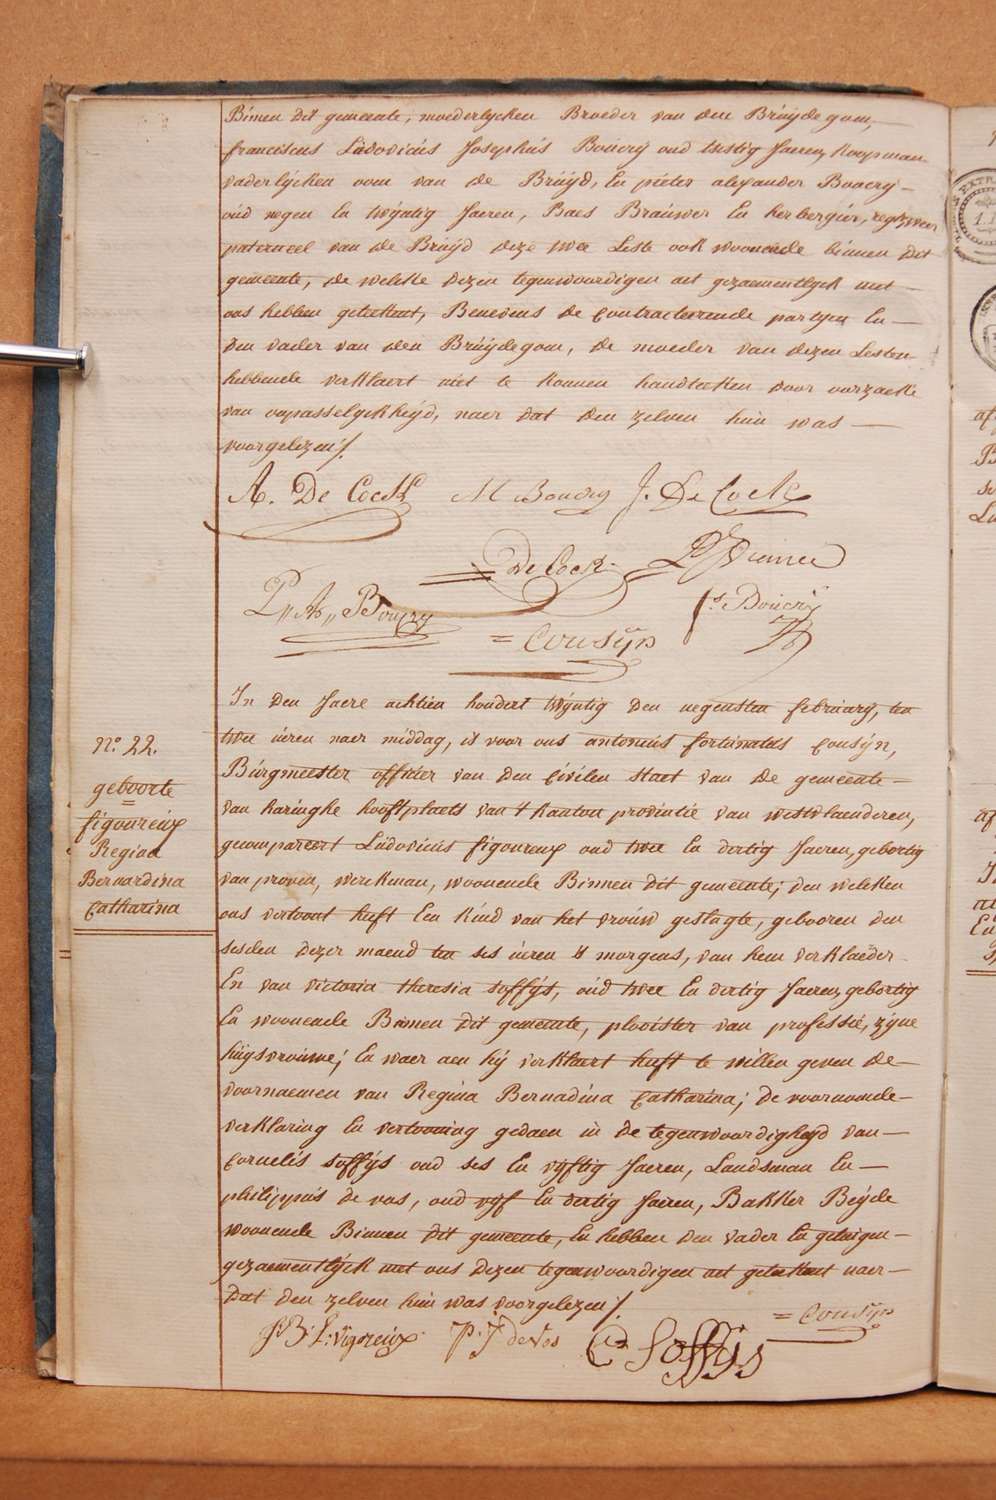 Binnen dit gemeente, moederlycken Broeder van den Brúÿdegom,
franciscus Lúdovicús Josephús Boúcrÿ oud tastig Jaeren, koopman
vaderlÿcken oom van de Brúÿd, En pieter alexander Boucrÿ
oúd negen En twÿntig Jaeren, Baes Braúwer En herbergier,
paterneel van de Brúÿd deze twee Leste ook woonende binnen dit
gemeente, de welke dezen tegenwoordigen act gezaementlyck met
ons hebben geteekent, Benevens de Contracteerende partyen En
den vader van den Brúÿdegom, de moeder van dezen Lesten
hebbende verklaert niet te konnen handteeken door oorzaeke
van onpasselyckheÿd, naer dat den zelven hún was
voorgelezen/.
A. De Cock M Boucrÿ J. De Cock
De Cock
P,, A,, Boucry Boúcrÿ
= Cousÿn
In den Jaere achtien hondert twÿntig den negensten febrúarÿ, ten
twee úeren naer middag, is voor ons antoniús fortúnatús Coúsÿn,
Búrgmeester officier van den Civilen staet van de gemeente
van haringhe hooftplaets van 't kanton provintie van westvlaenderen,
gecompareert Lúdovicús figoureux oud twee En dertig Jaeren, gebortig
van proven, werckman, woonende Binnen dit gemeente; den welcken
ons vertoont heeft Een kind van het vroúw geslagte, gebooren den
sesden dezer maend ten ses úeren 's morgens, van hem verklaeder
En van victoria theresia soffÿs, oúd twee En dertig Jaeren, gebortig
En woonende Binnen dit gemeente, plooister van professie, zÿne
húÿsvroúwe; En waer aen hÿ verklaert heeft te willen geven de
voornaemen van Regina Bernadina Catharina; de voornoemde
verklaring En vertooning gedaen in de tegenwoordigheÿd van
Cornelis soffÿs oud ses En vÿftig Jaeren, Landsman En
philippús de vos, oud vÿf En dertig Jaeren, Bakker Beÿde
woonende Binnen dit gemeente, En hebben den vader En getuigen
gezaementlÿck met ons dezen tegenwoordigen act geteekent naer
dat den zelven hún was voorgelezen/.
= Coúsÿn
J: B: L: Vigoreúx P: J deVos Cs Soffÿs
N.º 22.
geboorte
figoureux
Regina
Bernardina
Catharina